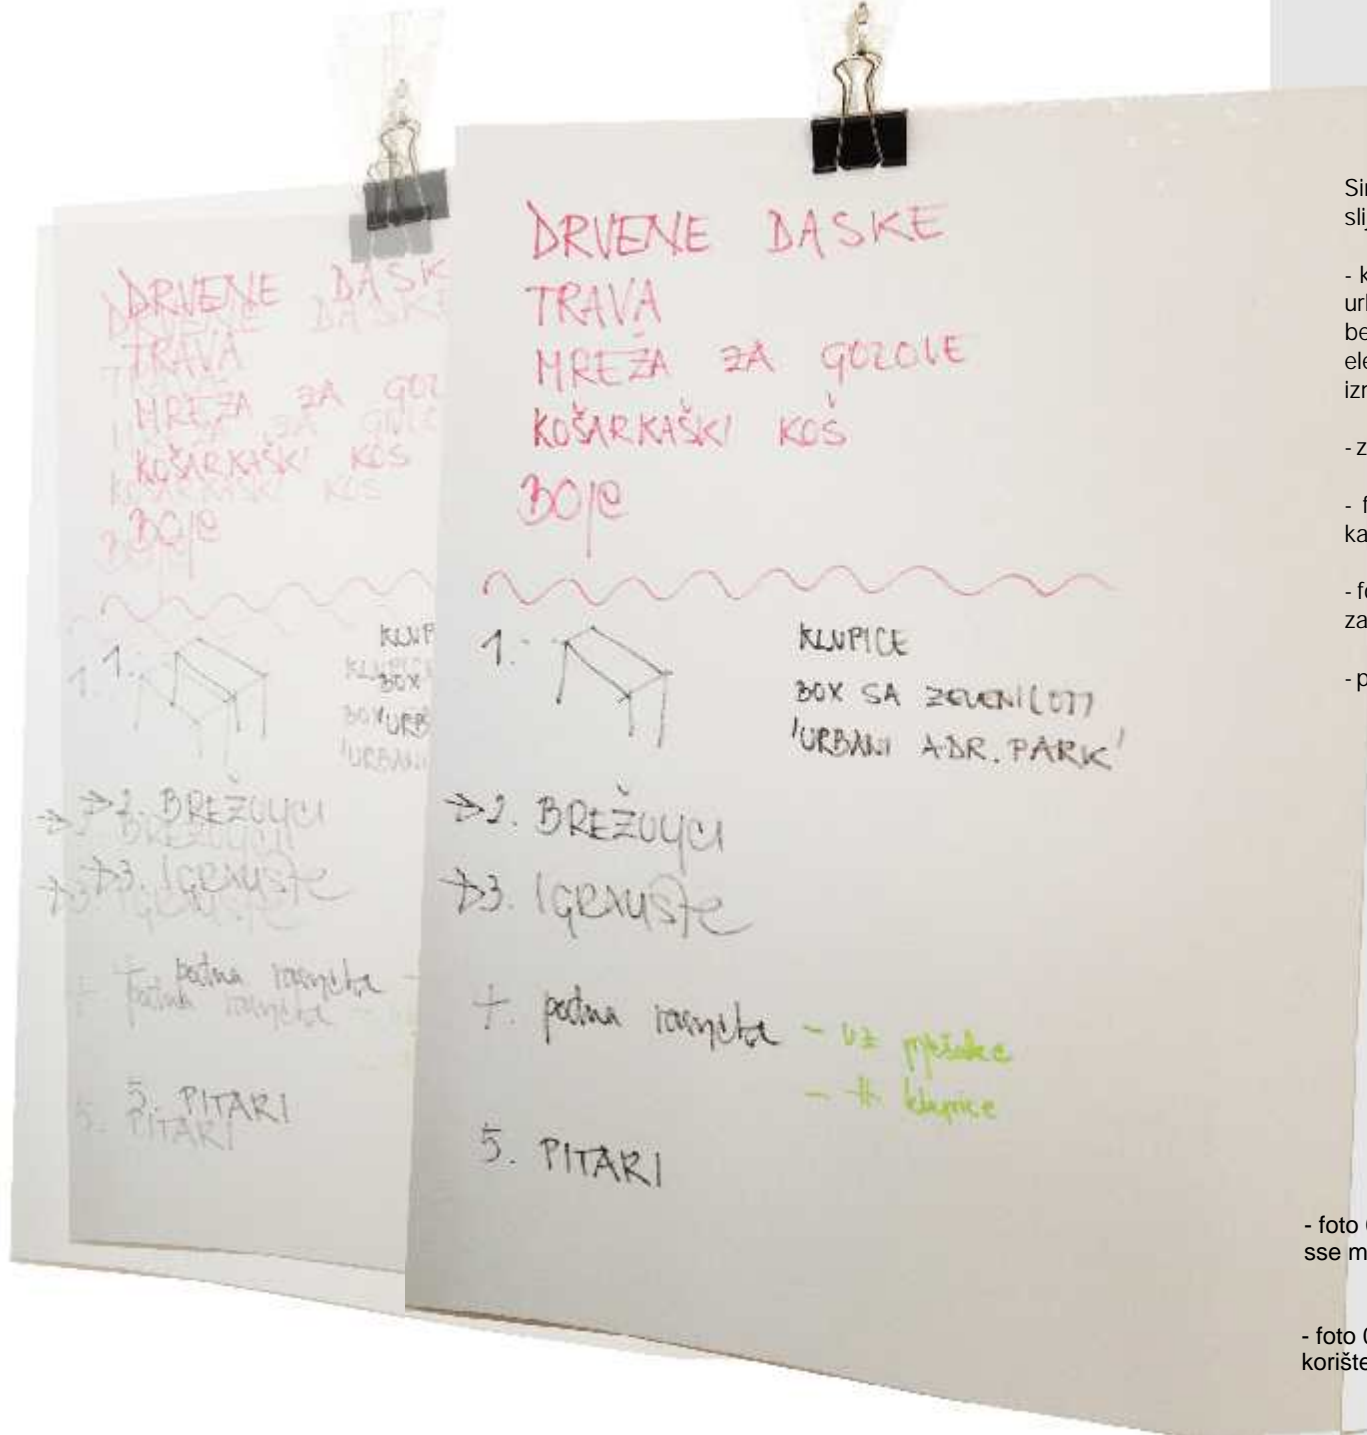 DRVENE DASKE
TRAVA
MREŽA ZA GOLOVE
KOŠARKAŠKI KOŠ
BOJE
1.
KLUPICE
BOX SA ZELENILOM
'URBANI ADR. PARK'
→2. BREŽULJCI
→3. IGRALIŠTE
+. podna rasvjeta - uz pješake
- klupice
5. PITARI
DRVENE DASK
TRAVA
MREŽA ZA GOL
KOŠARKAŠKI KOŠ
BOJE
1.
KLUP
BOX
URB
→2. BREŽULJCI
→3. IGRALIŠTE
+ podna rasvjeta
5. PITARI
Sir
slij
- k
url
be
ele
izr
- z
- f
ka
- fo
za
- p
- foto
sse m
- foto
korište